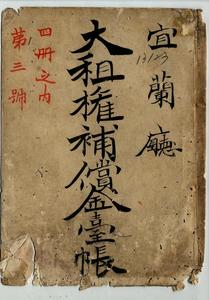 宜蘭廳
13123
大租權補償金臺帳
四冊之內
第三號